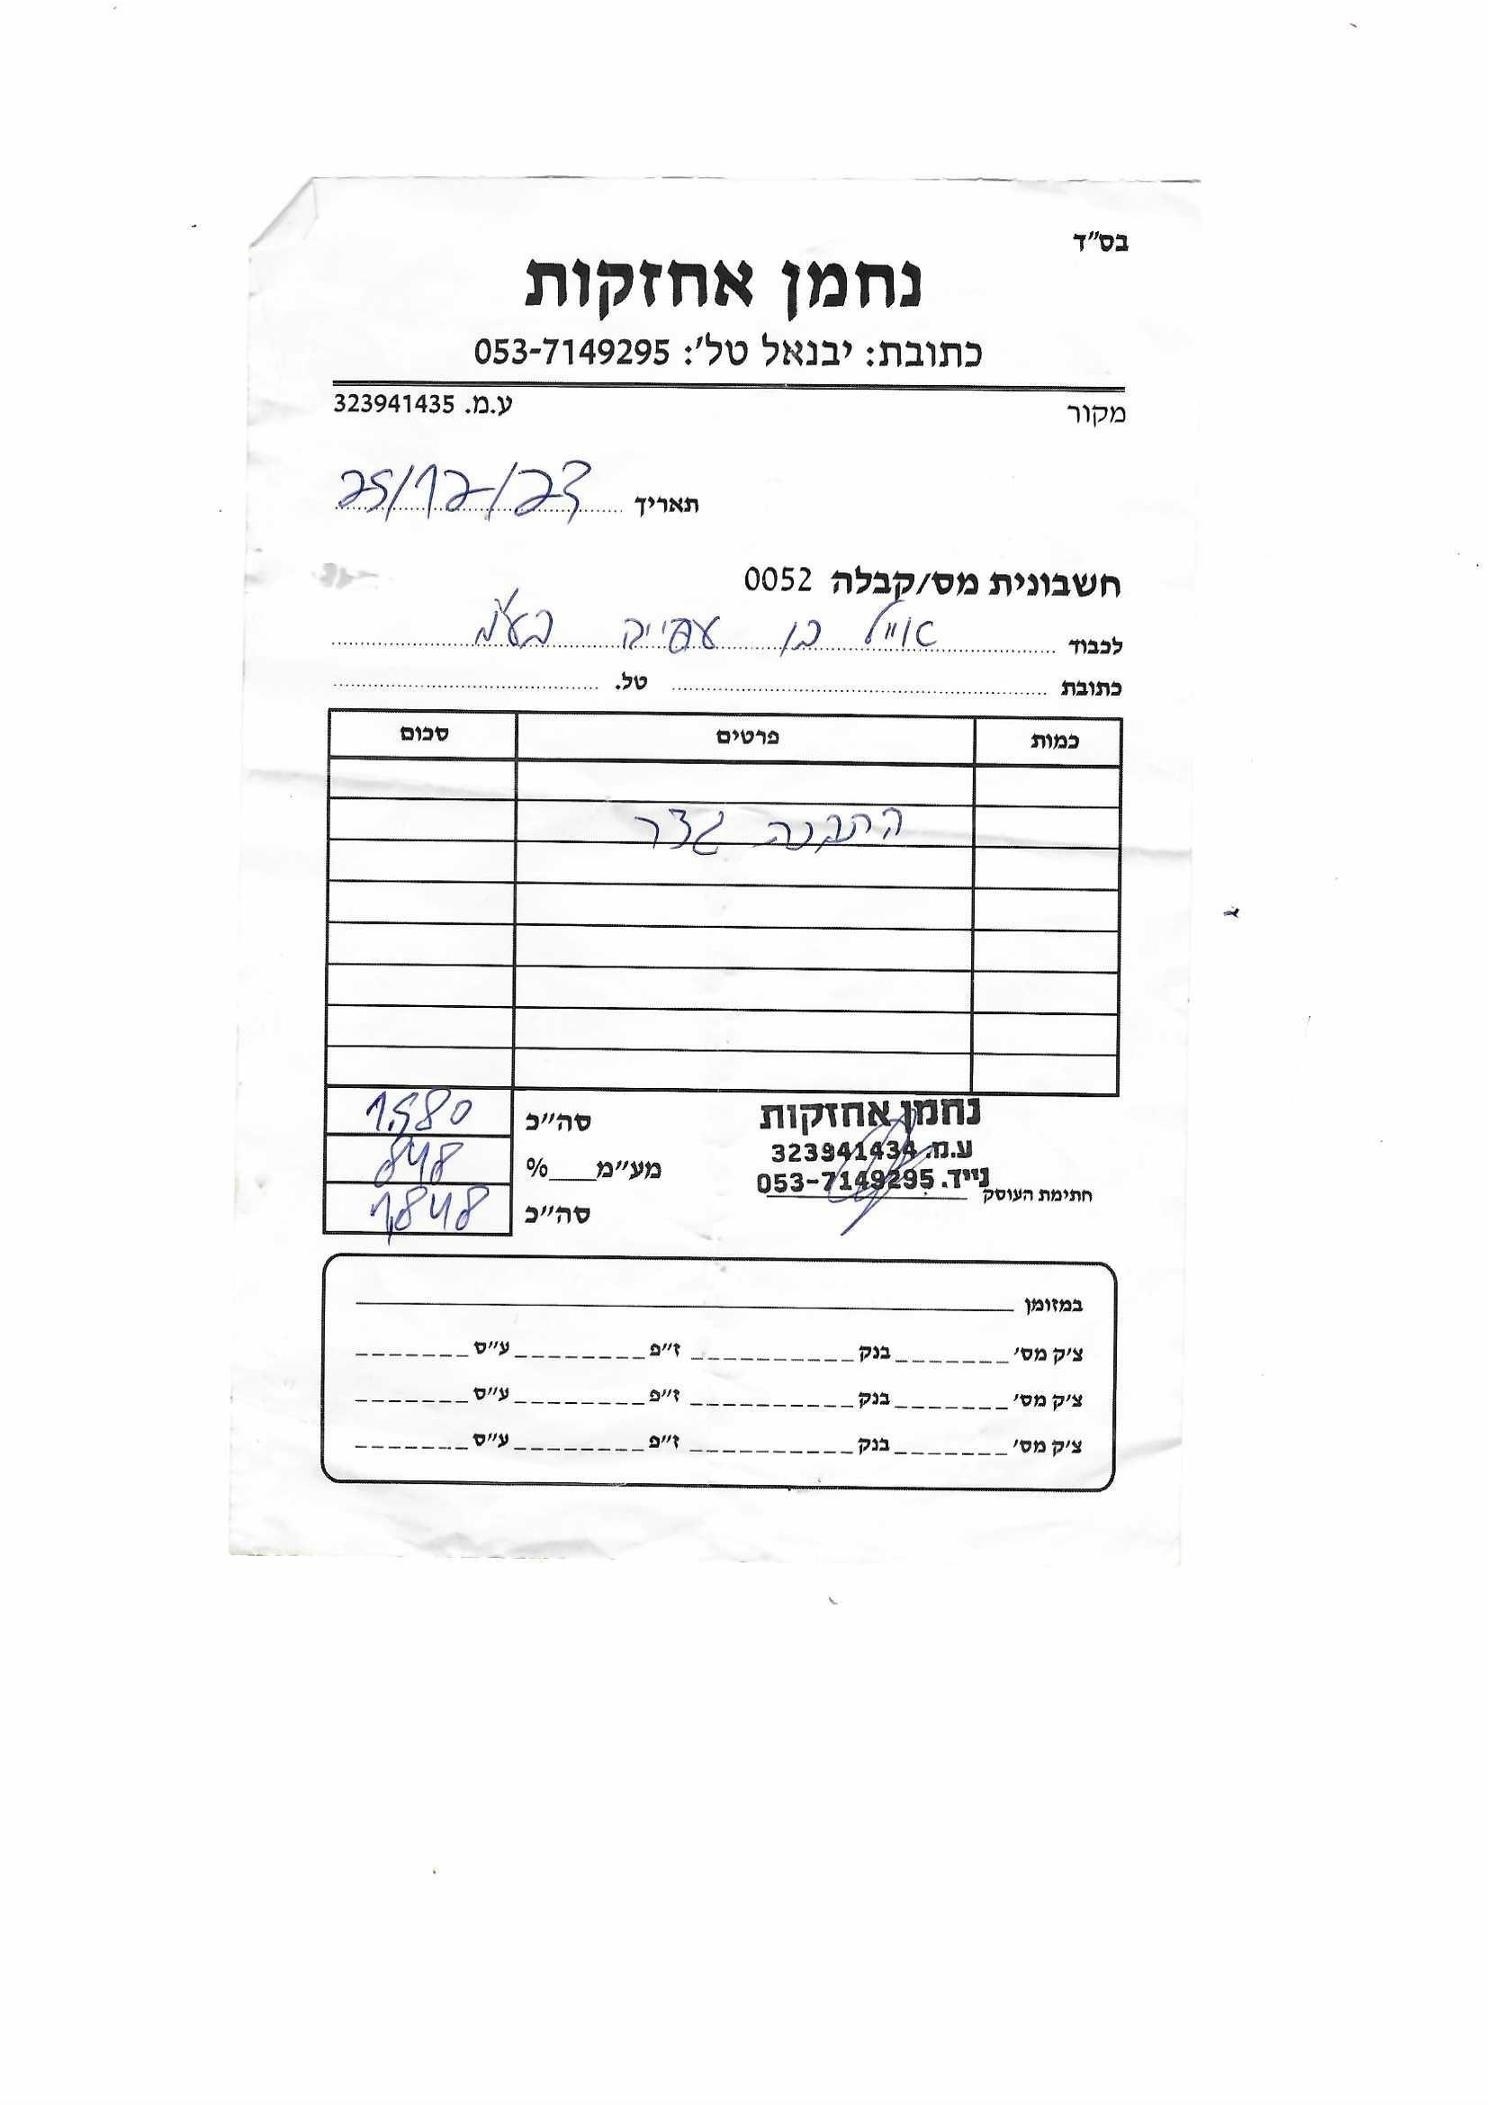 בס"ד
נחמן אחזקות
כתובת: יבנאל טל': 053-7149295
מקור ע.מ. 323941435
תאריך 25/12/23
חשבונית מס/קבלה 0052
לכבוד אייל בן עסייה בע"מ
כתובת טל.
כמות פרטים סכום
התקנה גדר
סה"כ 1,580
מע"מ % 848
סה"כ 1,848
נחמן אחזקות
ע.מ. 323941434
נייד. 053-7149295
חתימת העוסק
במזומן
צ'ק מס' בנק ז"פ ע"ס
צ'ק מס' בנק ז"פ ע"ס
צ'ק מס' בנק ז"פ ע"ס